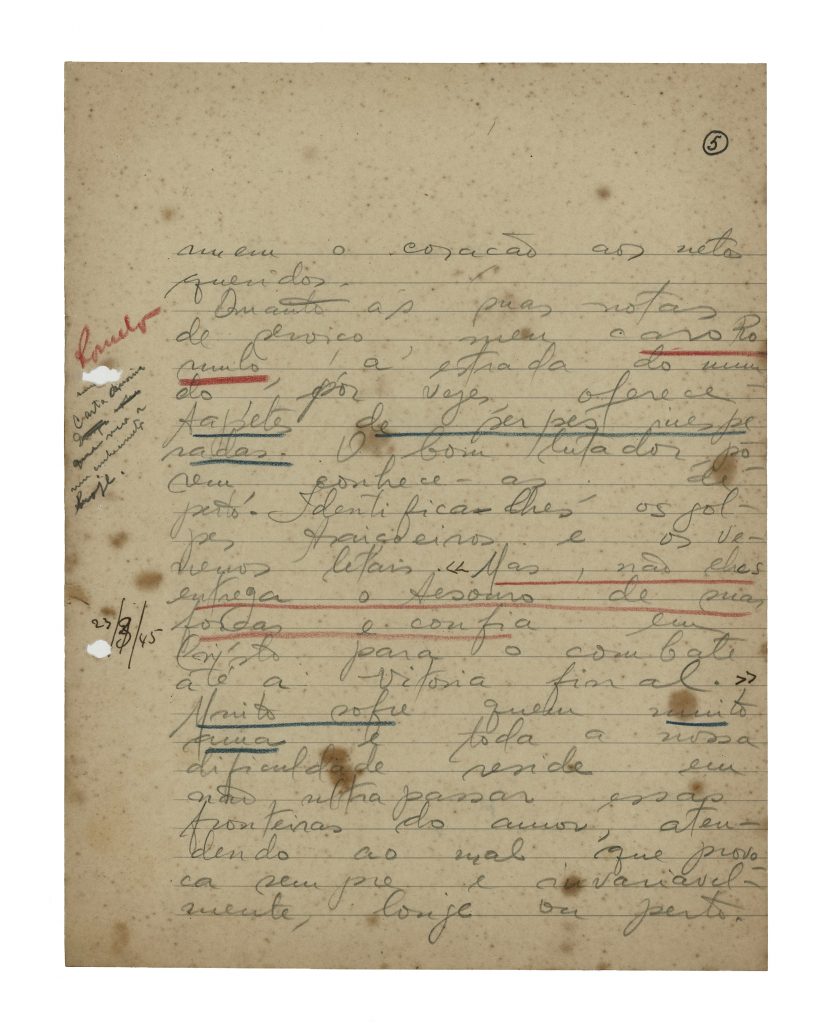 5
nuem o coração aos netos
queridos.
Quanto às suas notas
de serviço, meu caro Ro
mulo, a estrada do mun
do, por vezes, oferece
tapetes de serpes inespe
radas. O bom lutador, po
rem conhece-as de
perto. Identifica-lhes os gol-
pes traiçoeiros e os ve-
nenos letais. « Mas, não lhes
entrega o tesouro de suas
forças e confia em
Cristo para o combate
até a vitoria final. »
Muito sofre quem muito
ama e toda a nossa
dificuldade reside em
não ultrapassar essas
fronteiras do amor, aten-
dendo ao mal que provo
ca sempre e invariavel-
mente, longe ou perto.
Romulo
Carta
hoje.
23/3/45